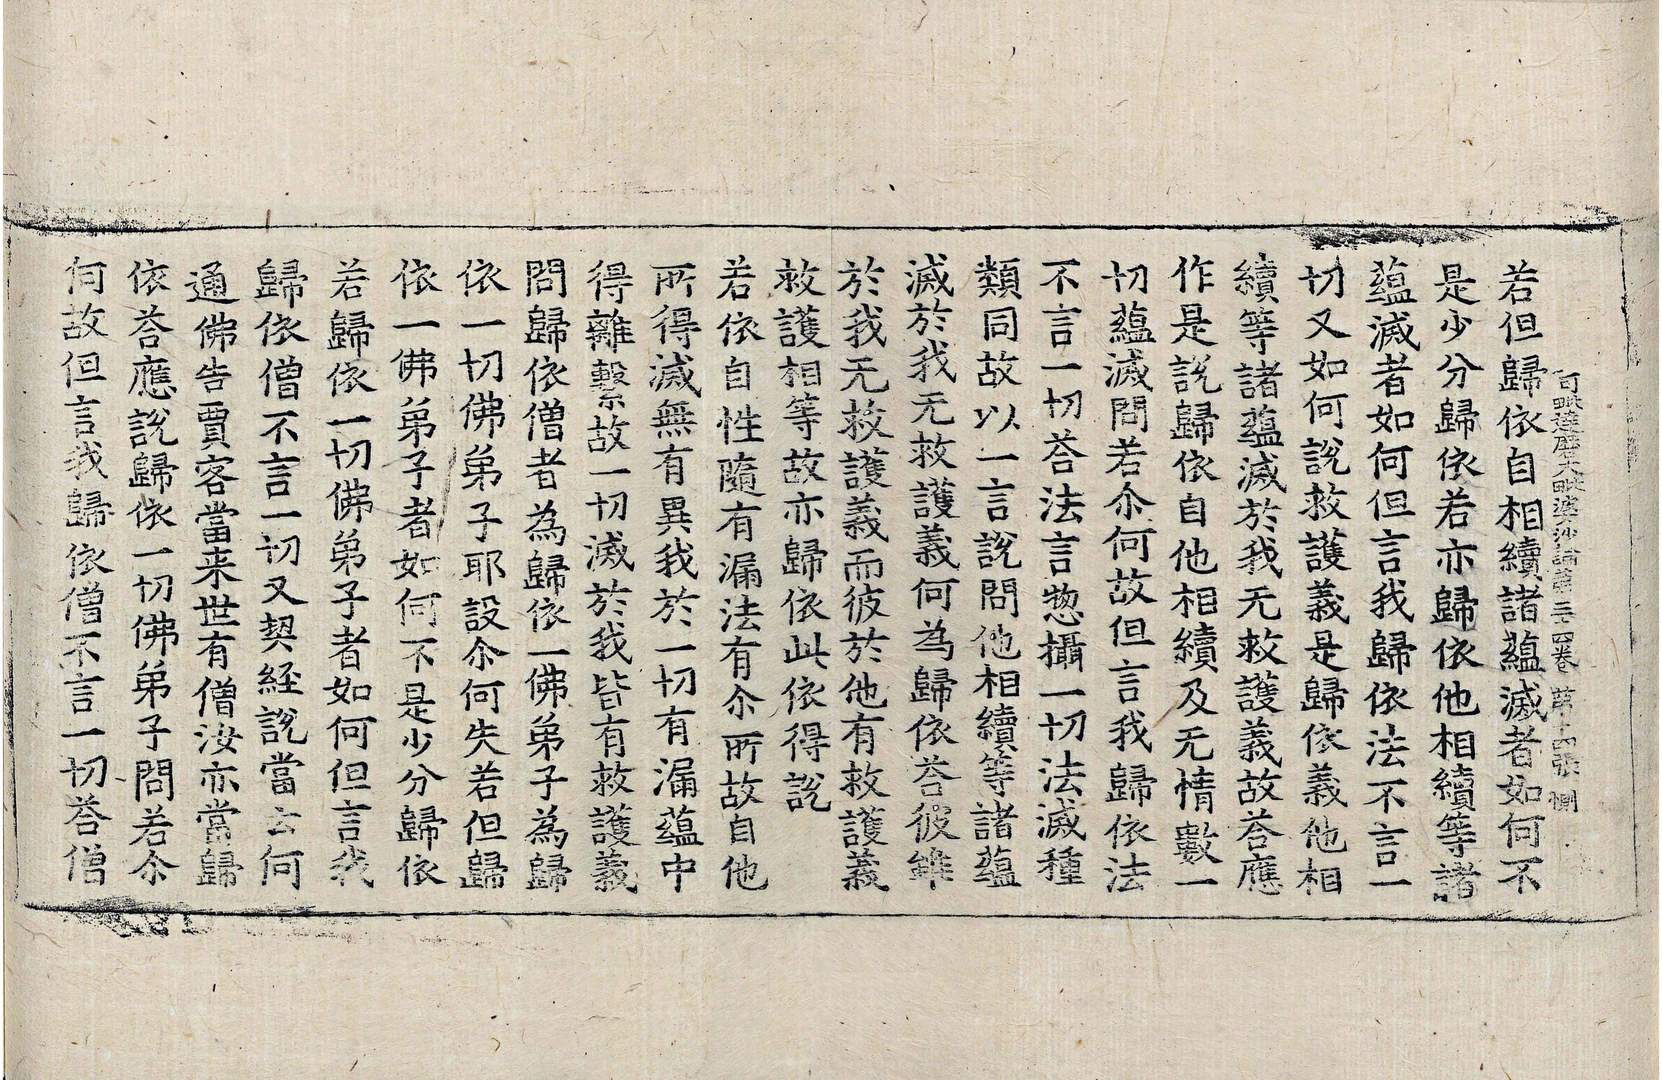 阿毗達磨大毗婆沙論第三十四卷 第十四張 惻
若但歸依自相續諸蘊滅者如何不
是少分歸依若亦歸依他相續等諸
蘊滅者如何但言我歸依法不言一
切又如何說救護義是歸依義他相
續等諸蘊滅於我无救護義故荅應
作是說歸依自他相續及无情數一
切蘊滅問若尒何故但言我歸依法
不言一切荅法言惣攝一切法滅種
類同故以一言說問他相續等諸蘊
滅於我无救護義何為歸依荅彼雖
於我无救護義而彼於他有救護義
救護相等故亦歸依此依得說
若依自性隨有漏法有尒所故自他
所得滅無有異我於一切有漏蘊中
得離繫故一切滅於我皆有救護義
問歸依僧者為歸依一佛弟子為歸
依一切佛弟子耶設尒何失若但歸
依一佛弟子者如何不是少分歸依
若歸依一切佛弟子者如何但言我
歸依僧不言一切又契經說當云何
通佛告賈客當来世有僧汝亦當歸
依荅應說歸依一切佛弟子問若尒
何故但言我歸依僧不言一切荅僧